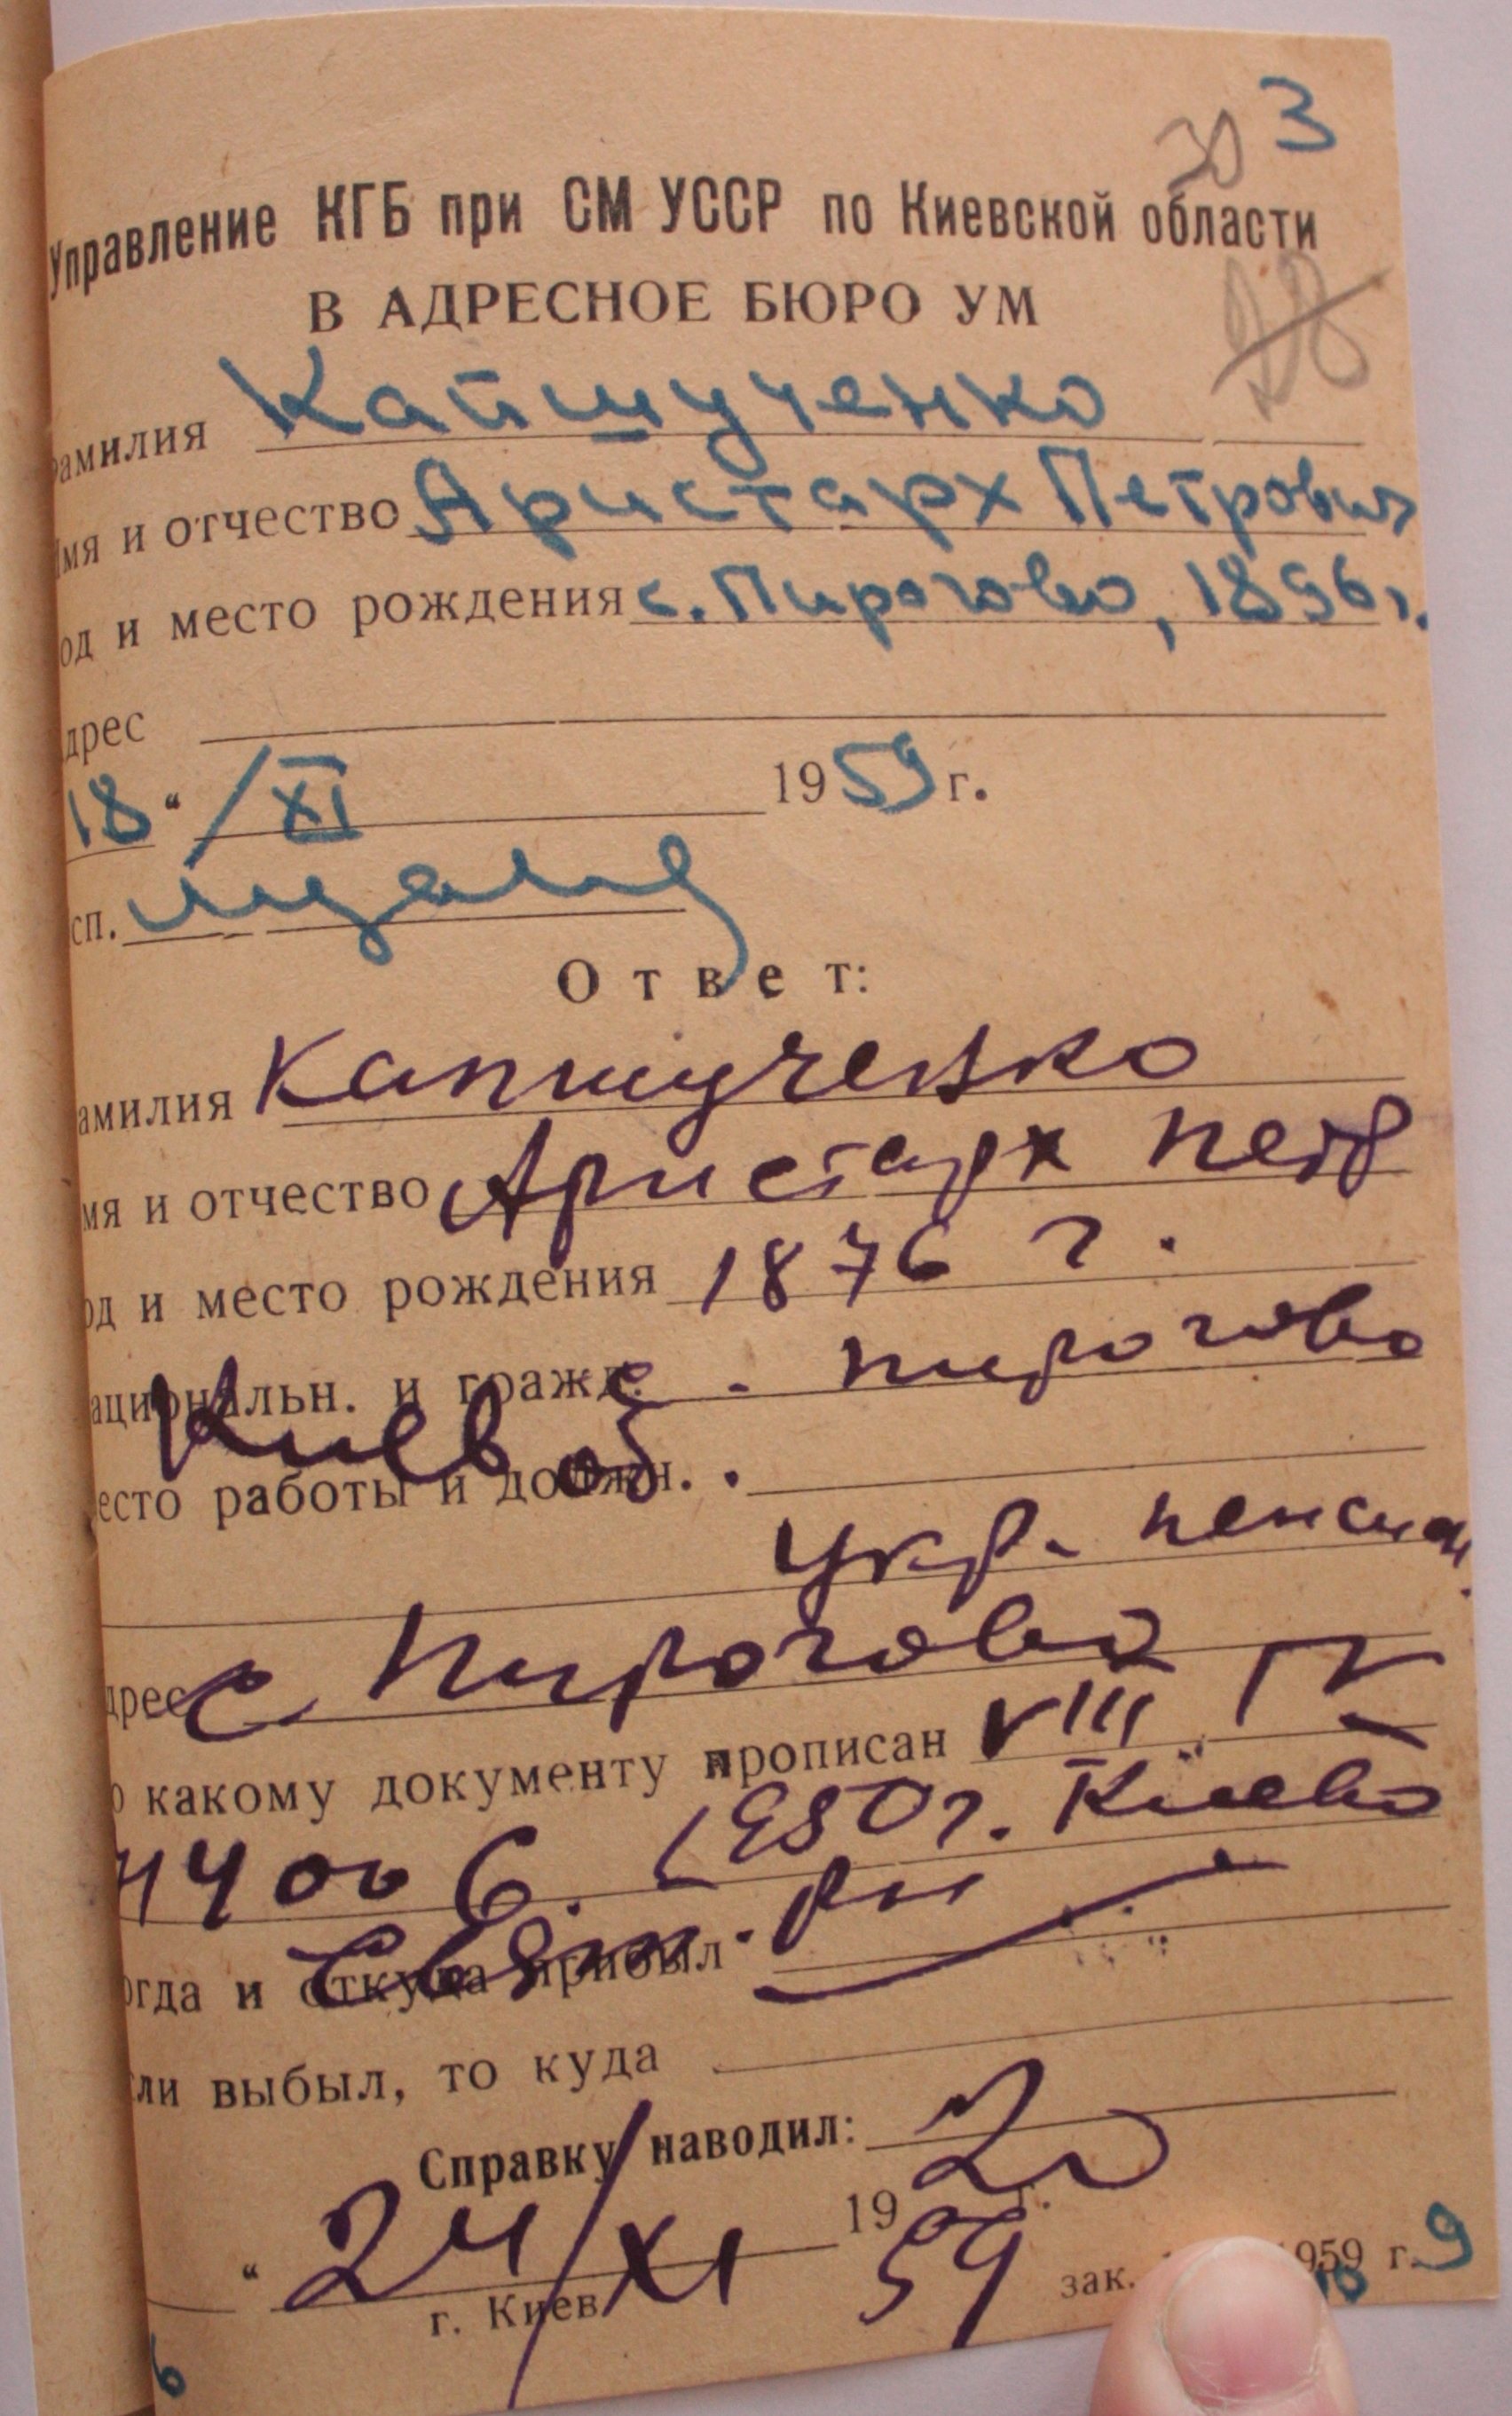 30 3
Управление КГБ при СМ УССР по Киевской области
В АДРЕСНОЕ БЮРО УМ
28
амилия Капшученко
мя и отчество Аристарх Петрович
од и место рождения с. Пирогово, 1896 г.
дрес
18 " / XI 1959 г.
сп.
Ответ:
амилия Капшученко
мя и отчество Аристарх Петр
од и место рождения 1876 г.
ациональн. и гражд. с. Пирогово
Киев об.
есто работы и должн.
укр. пенсион.
дрес с Пирогово
о какому документу прописан VIII
1950 г. Киево
Свят. рн
огда и откуда прибыл
ли выбыл, то куда
Справку наводил:
" 24/XI 1959 г.
г. Киев
зак. 1959 г. 9
6